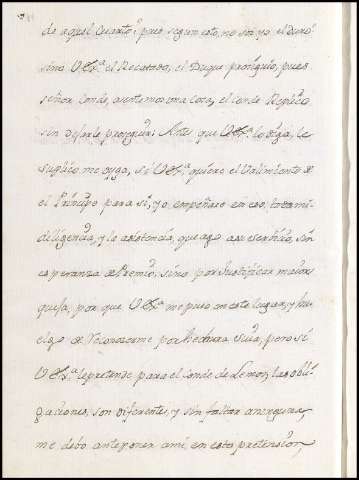 de aquel Cuarto; pues segun esto, no soy yo el Duro
sino V Exª. el Recatado, el Duque prosiguio, pues
señor Conde, asentemos una Cosa, el Conde Replico
sin dejarle proseguir, Antes que V Exª. lo diga, le
suplico me oyga, si V Exª. quiere el Valimiento de
el Principe para si, yo empeñare en eso, toda mi
diligencia, y la asistencia, que ago a su servicio, sin
esperanza de Premio, sino por Justificar maior
quesa, por que V Exª. me puso en este lugar, y hu
elgo de Reconocerme por hechura Suia, pero si
V Exª. le pretende para el Conde de Lemos, las obli
gaciones, son diferentes, y sin faltar a ninguna,
me debo anteponer a mi, en esta pretension,